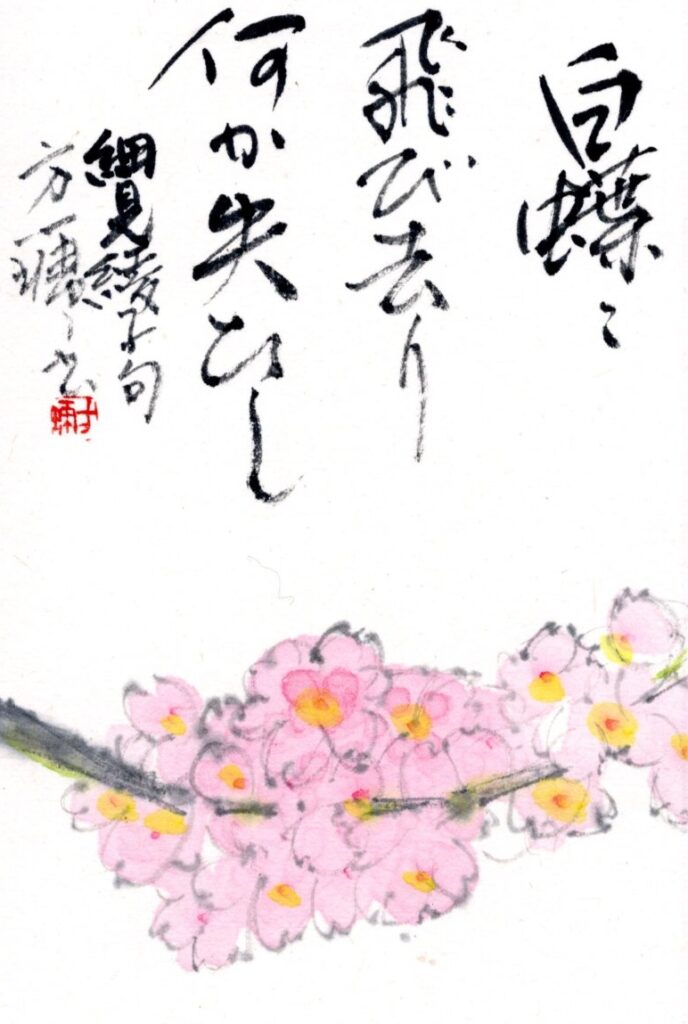 白蝶々
飛び去り
何か失ひし
細見綾子句
書